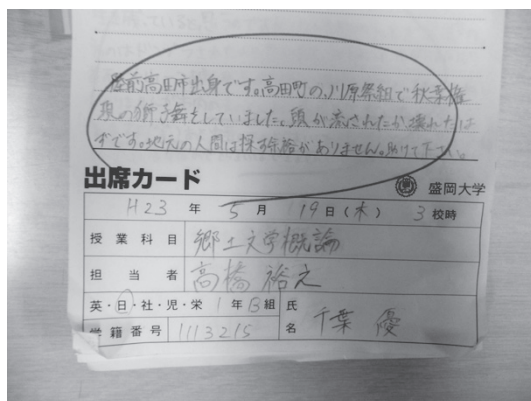 陸前高田市出身です。高田町の、川原祭組で秋葉権
現の獅子舞をしていました。頭が流されたか、壊れたは
ずです。地元の人間は探す余裕がありません。助けて下さい。
出席カード 盛岡大学
H23年5月19日(木) 3校時
授業科目 郷土文学概論
担当者 高橋 裕之
英・日・社・児・栄 1年B組 氏名 千葉 優
学籍番号 1113215